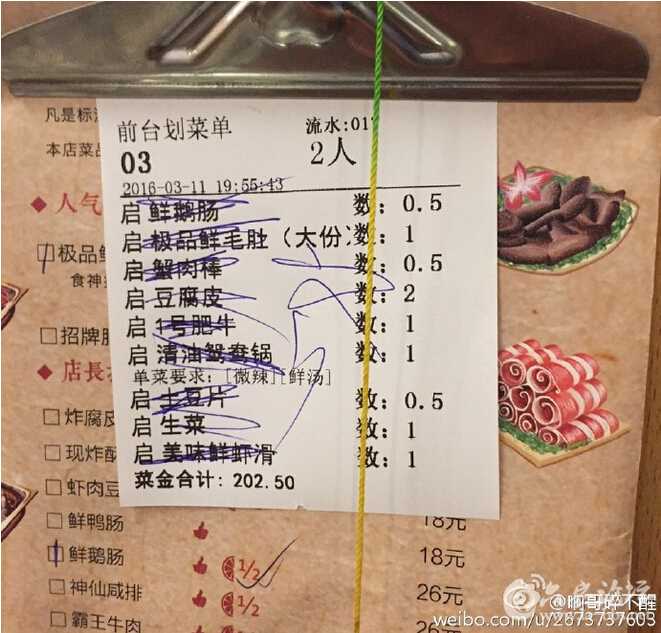 凡是标
本店菜品
人气
极品鲜
食神
招牌
店長
炸腐皮
现炸酥
虾肉豆
鲜鸭肠 18元
鲜鹅肠 1/2 18元
神仙咸排 1/2 26元
霸王牛肉 26元
前台划菜单 流水:017
03 2人
2016-03-11 19:55:43
启 鲜鹅肠 数: 0.5
启 极品鲜毛肚（大份） 数: 1
启 蟹肉棒 数: 0.5
启 豆腐皮 数: 2
启 1号肥牛 数: 1
启 清油鸳鸯锅 数: 1
单菜要求: [微辣][鲜汤]
启 土豆片 数: 0.5
启 生菜 数: 1
启 美味鲜虾滑 数: 1
菜金合计: 202.50
@啊哥碎不醒
weibo.com/u/2673737603